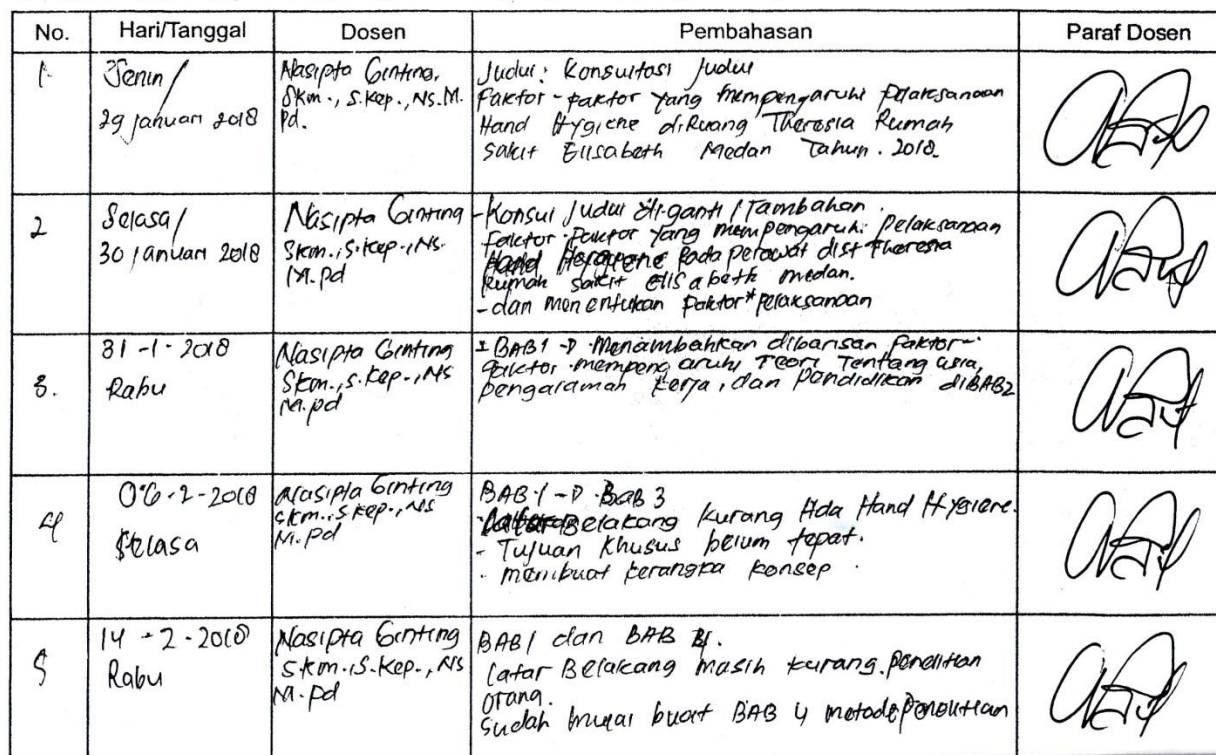 No. Hari/Tanggal Dosen Pembahasan Paraf Dosen
1. Senin / 29 januari 2018
Nasipta Ginting,
Skm., S.Kep., Ns.M.
Pd.
Judul: Konsultasi Judul
Faktor-faktor yang mempengaruhi pelaksanaan
Hand Hygiene diRuang Theresia Rumah
Sakit Elisabeth Medan Tahun. 2018.
2 Selasa / 30 januari 2018
Nasipta Ginting
Skm., S.Kep., Ns.
M.Pd
- Konsul Judul di ganti / Tambahan.
faktor-faktor yang mempengaruhi pelaksanaan
Hand Hygiene pada perawat dist Theresia
Rumah sakit Elisabeth medan.
- dan menentukan faktor* pelaksanaan
3. 31-1-2018
Rabu
Nasipta Ginting
Skm., S.Kep., Ns
M.pd
BAB1 -> Menambahkan dibarisan faktor-
faktor mempengaruhi Teori Tentang usia,
pengalaman kerja, dan pendidikan diBAB2
4 06-2-2018
Selasa
Nasipta Ginting
Skm., S.kep., Ns
M.pd
BAB 1 -> Bab 3
Belakang kurang Ada Hand Hygiene.
- Tujuan khusus belum tepat.
- membuat kerangka konsep.
5 14-2-2018
Rabu
Nasipta Ginting
S.km., S.Kep., Ns
M.pd
BAB 1 dan BAB
Latar Belakang masih kurang. penelitian
orang.
Sudah mulai buat BAB 4 metode penelitian